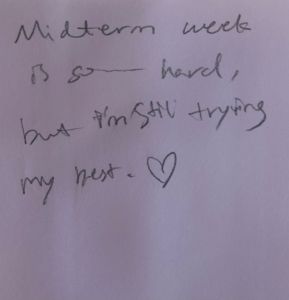 Midterm week
is so—— hard,
but i'm still trying
my best. ♡